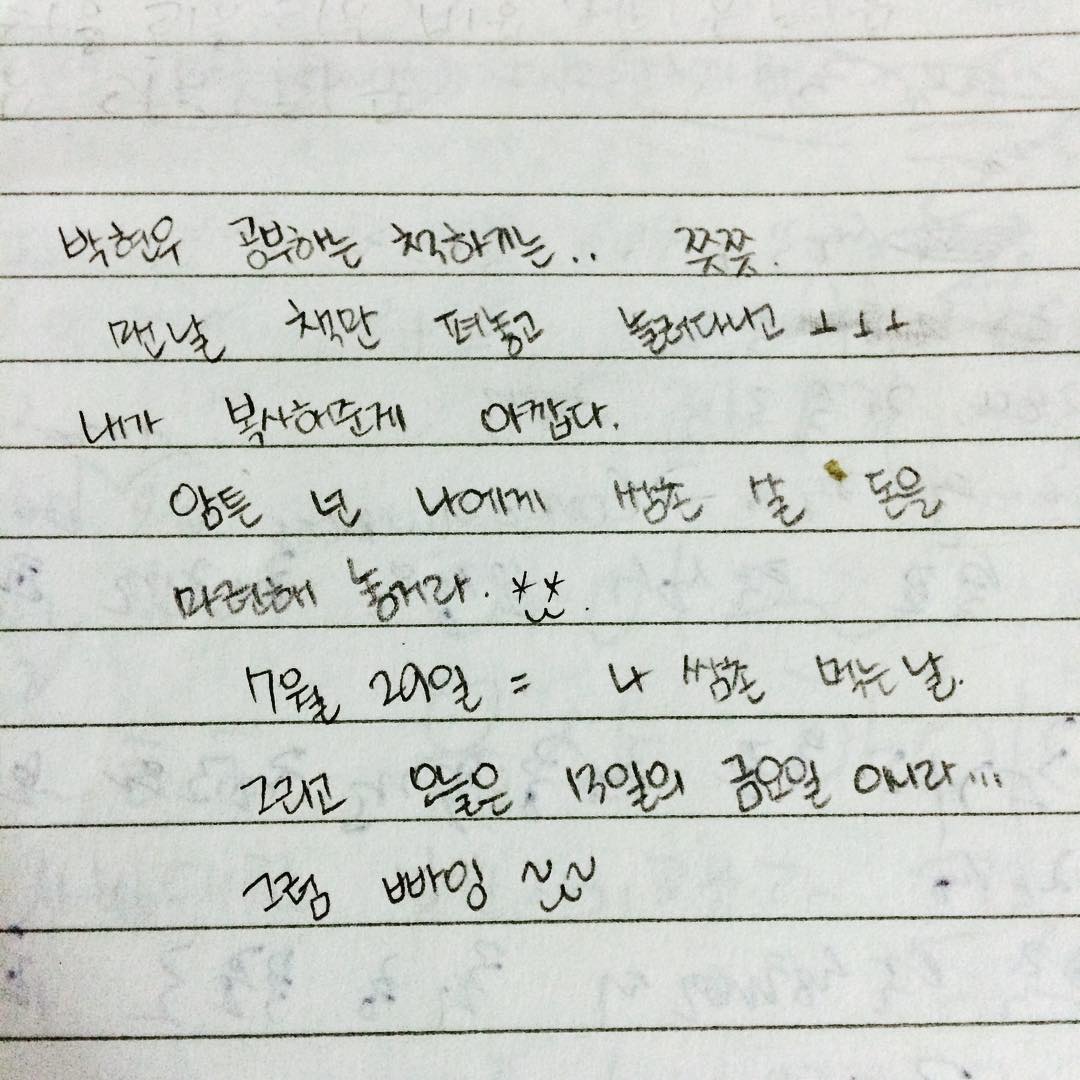 박현우 공부하는 척하기는.. 쯧쯧.
맨날 책만 펴놓고 놀러다니고 ㅜㅜㅜ
내가 복사해준게 아깝다.
암튼 넌 나에게 쌈촌 살 돈을
마련해 놓거라. *‿*.
7월 29일 = 나 쌈촌 먹는날.
그리고 오늘은 13일의 금요일 이니라...
그럼 빠잉 ~‿~